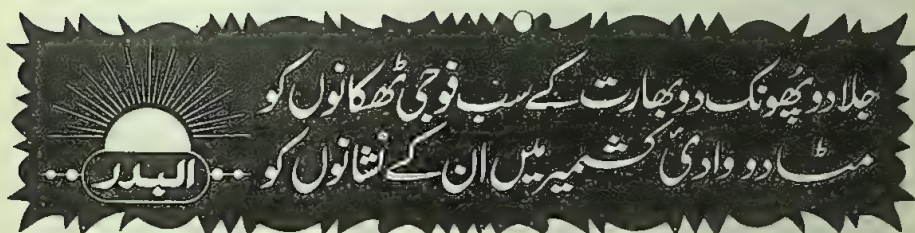 جلا دو پھونک دو بھارت کے سب فوجی ٹھکانوں کو
مٹا دو وادیٔ کشمیر میں ان کے نشانوں کو
البدر